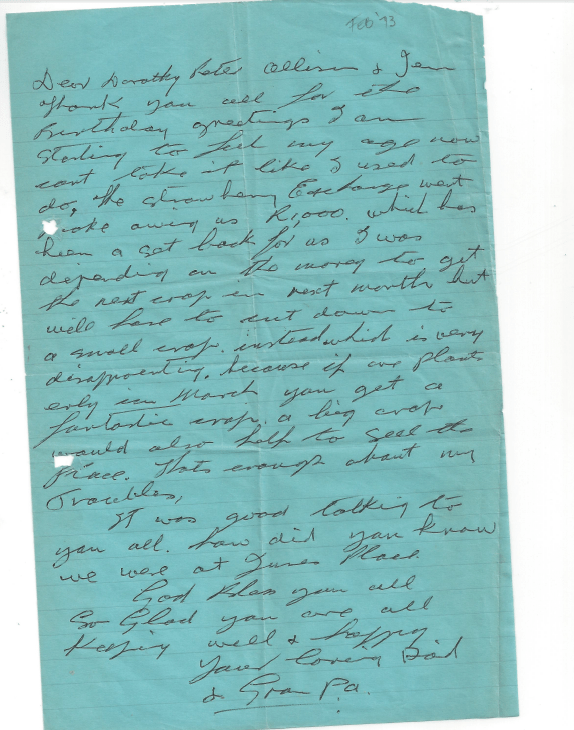 Feb '93
Dear Dorothy Peter Allison & Jen
Thank you all for the
Birthday greetings I am
starting to feel my age now
cant take it like I used to
do, the strawberry Exchange went
broke owing us R1,000. which has
been a set back for us I was
depending on the money to get
the next crop in next month but
will have to cut down to
a small crop. instead which is very
disappointing. because if one plants
erly in March you get a
fantastic crop. a big crop
would also help to sell the
place. Thats enough about my
Troubles,
It was good talking to
you all. how did you know
we were at Junes Place
God Bless you all
So Glad you are all
Keeping well & happy
Your loving Dad
& Gran Pa.